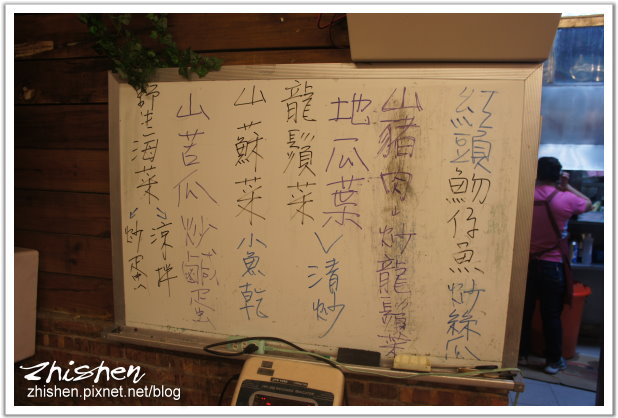 紅頭魩仔魚炒絲瓜
山豬肉炒龍鬚菜
地瓜葉
龍鬚菜
清炒
山蘇菜小魚乾
山苦瓜炒鹹蛋
野生海菜
涼拌
炒蛋
Zhishen
zhishen.pixnet.net/blog